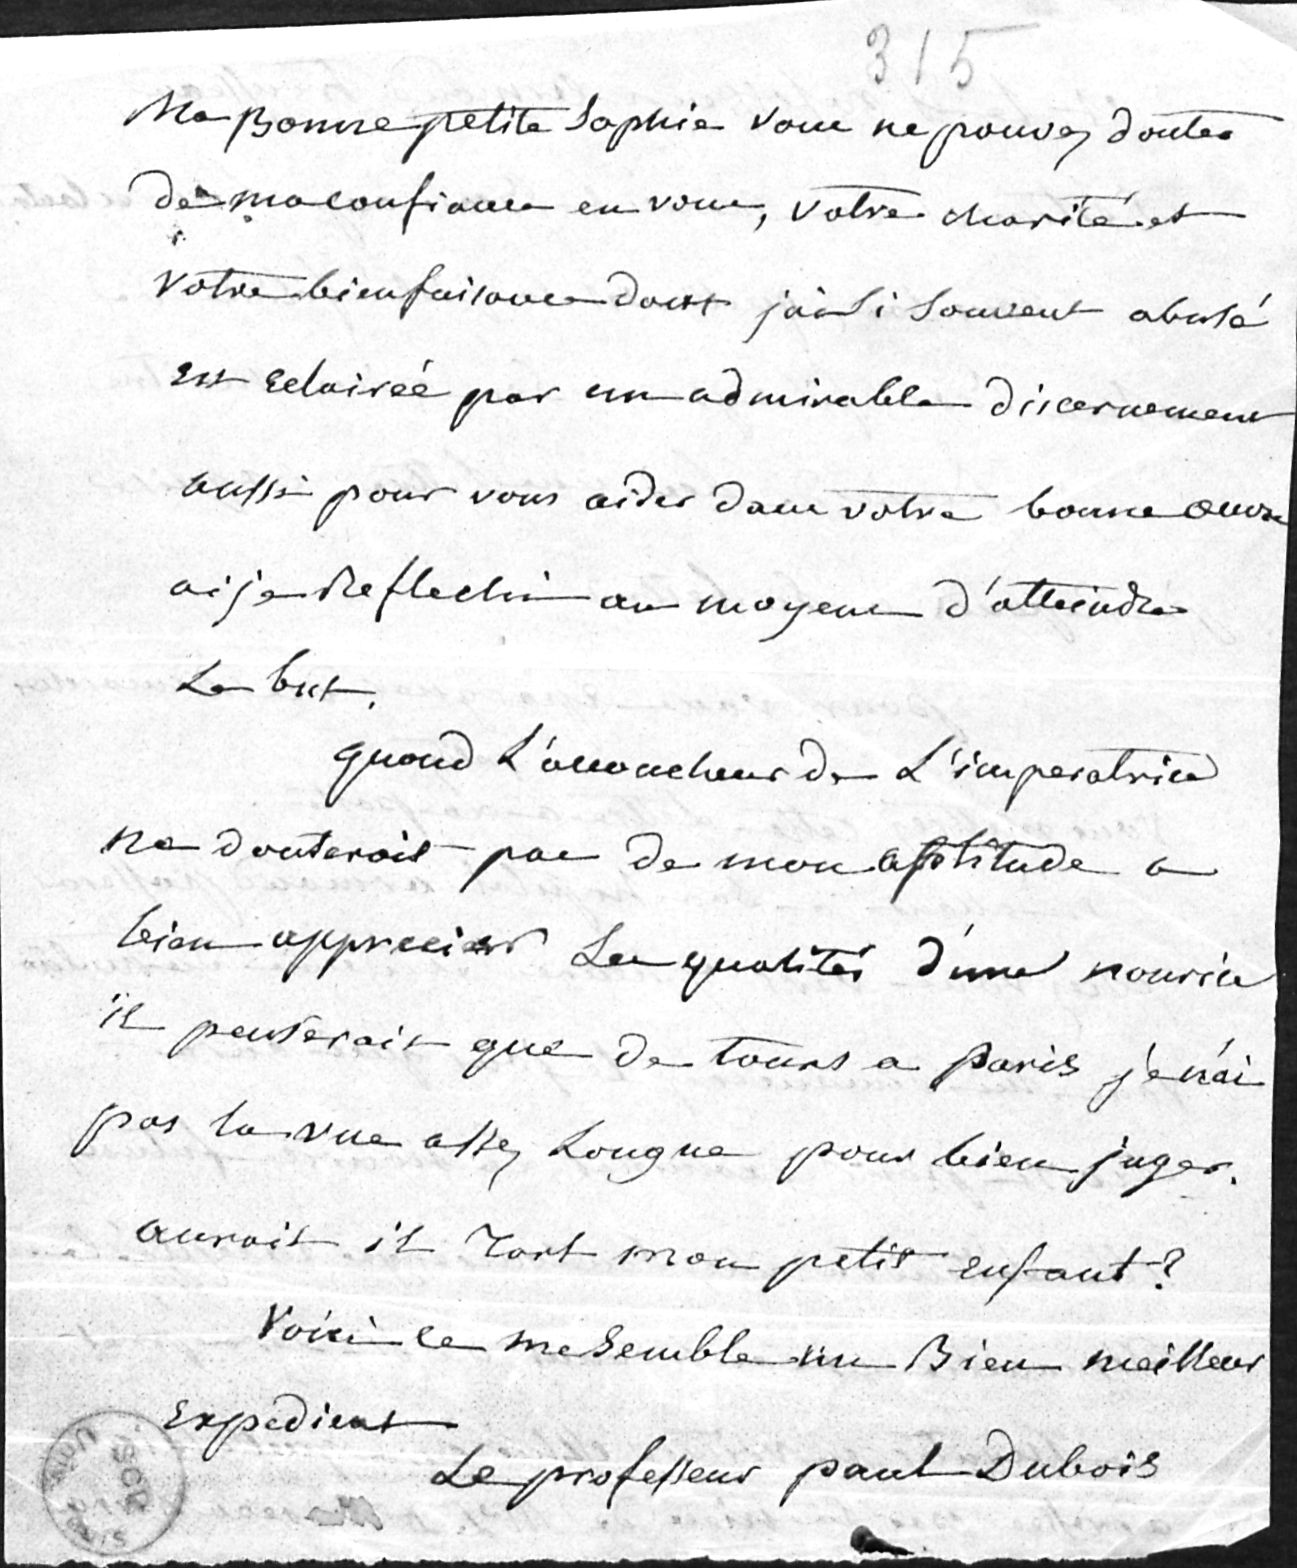 315
Ma Bonne petite Sophie vous ne pouvez douter
de ma confiance en vous, votre charité et
votre bienfaisance dont j'ai si souvent abusé
est eclairée par un admirable discernement
aussi pour vous aider dans votre bonne œuvre
ai je reflechi au moyens d'atteindre
Le but.
quand L'accoucheur de L'imperatrice
ne douterait pas de mon aptitude a
bien apprecier Les qualités d'une nourice
il penserait que de tours a Paris je n'ai
pas la vue assez Longue pour bien juger.
aurait il tort mon petit enfant?
Voici ce me semble un Bien meilleur
Expedient
Le professeur paul Dubois